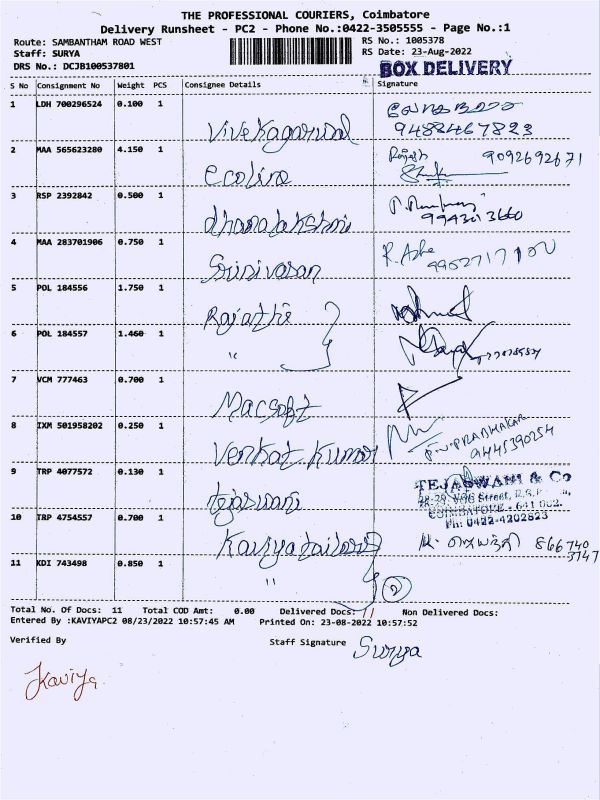 THE PROFESSIONAL COURIERS, Coimbatore
Delivery Runsheet - PC2 - Phone No.:0422-3505555 - Page No.:1
Route: SAMBANTHAM ROAD WEST RS No.: 1005378
Staff: SURYA RS Date: 23-Aug-2022
DRS No.: DCJB100537801 BOX DELIVERY
S No Consignment No Weight PCS Consignee Details Signature
1 LDH 700296524 0.100 1
Vivekagarwal 9488467823
2 MAA 565623280 4.150 1 Rajesh 9092692671
ecoline
3 RSP 2392842 0.500 1
dhanalakshmi
4 MAA 283701906 0.750 1 R. Asha
Srinivasan
5 POL 184556 1.750 1
Rajathi
6 POL 184557 1.460 1
"
7 VCM 777463 0.700 1
Macsoft
8 IXM 501958202 0.250 1 PRABHAKAR
Venkat Kumar 9445390254
9 TRP 4077572 0.130 1 TEJASWANI & Co
tejaswani Street,
COIMBATORE - 641 002.
Ph: 0422-4202623
10 TRP 4754557 0.700 1
Kaviyatailors
11 KDI 743498 0.850 1
" 2
Total No. Of Docs: 11 Total COD Amt: 0.00 Delivered Docs: 11 Non Delivered Docs:
Entered By :KAVIYAPC2 08/23/2022 10:57:45 AM Printed On: 23-08-2022 10:57:52
Verified By Staff Signature Surya
Kaviya